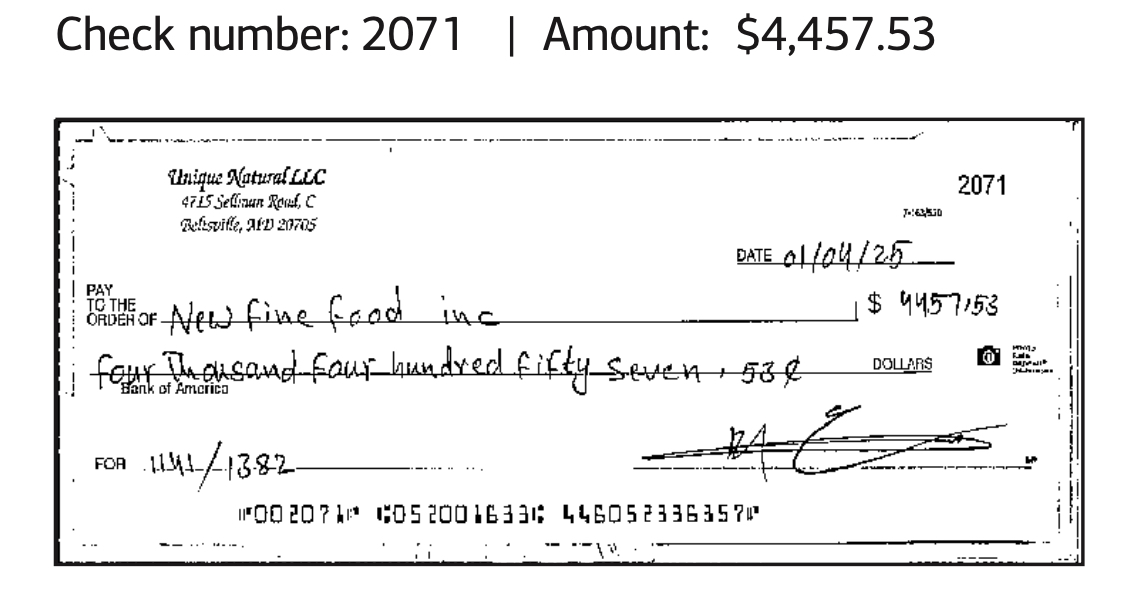 Check number: 2071 | Amount: $4,457.53
Unique Natural LLC
4715 Sellman Road, C
Beltsville, MD 20705
2071
7-163/520
DATE 01/04/25
PAY
TO THE
ORDER OF New fine food inc $ 4457.53
four Thousand four hundred fifty seven, 53¢ DOLLARS
Bank of America
FOR 1141/1382
⑈002071⑈ ⑆052001633⑆ 446052336357⑈